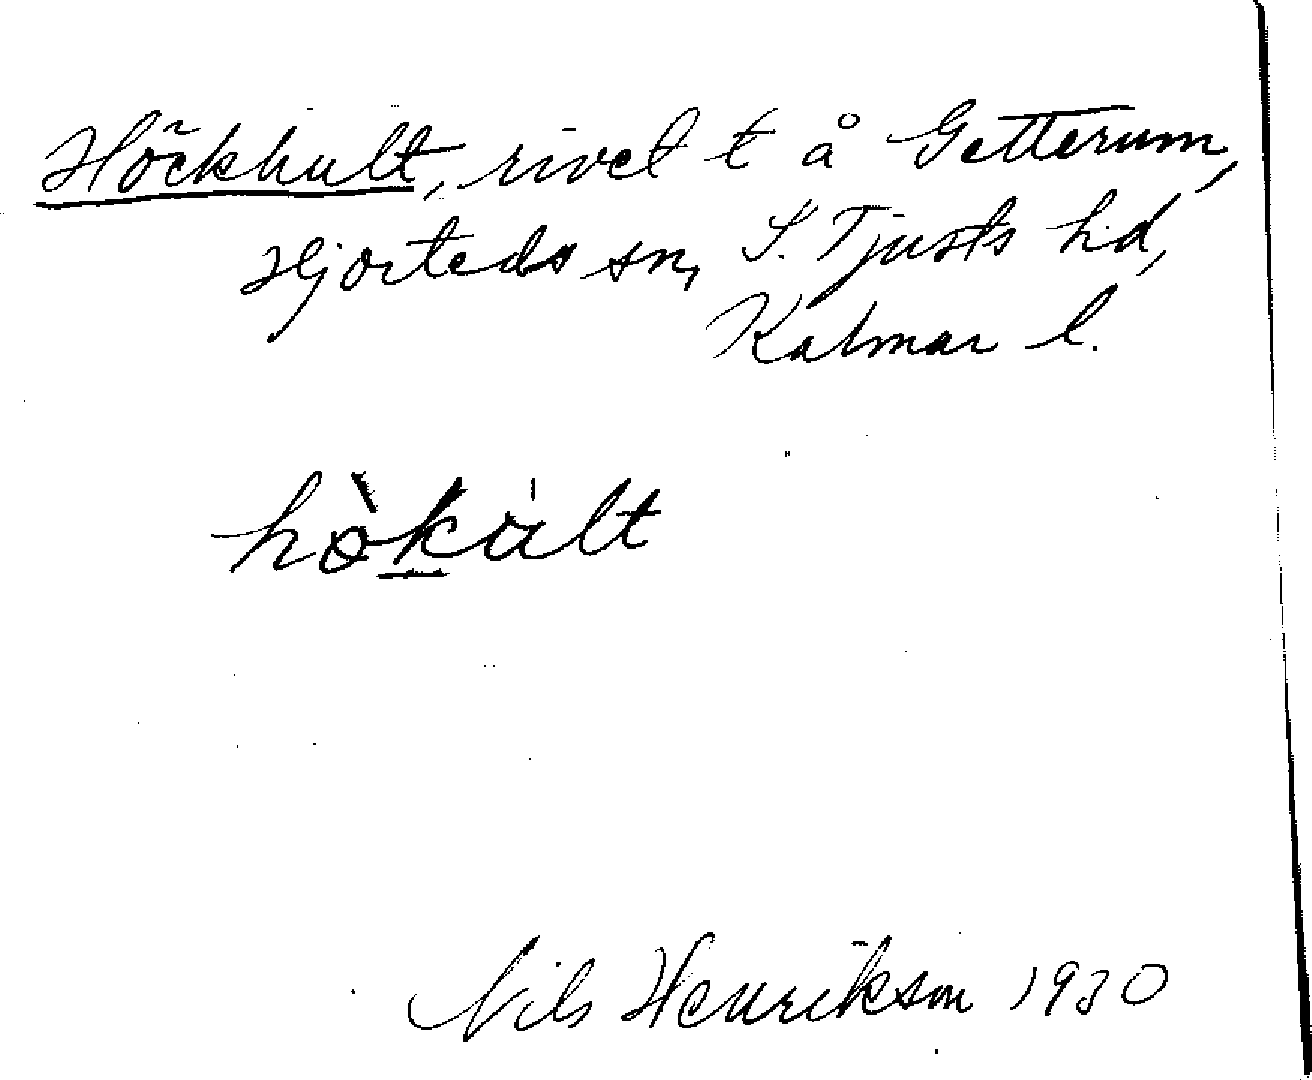 Höckhult, rivet t å Getterum,
Hjorteds sn, S. Tjusts hd,
Kalmar l.
hòkált
Nils Henrikson 1930